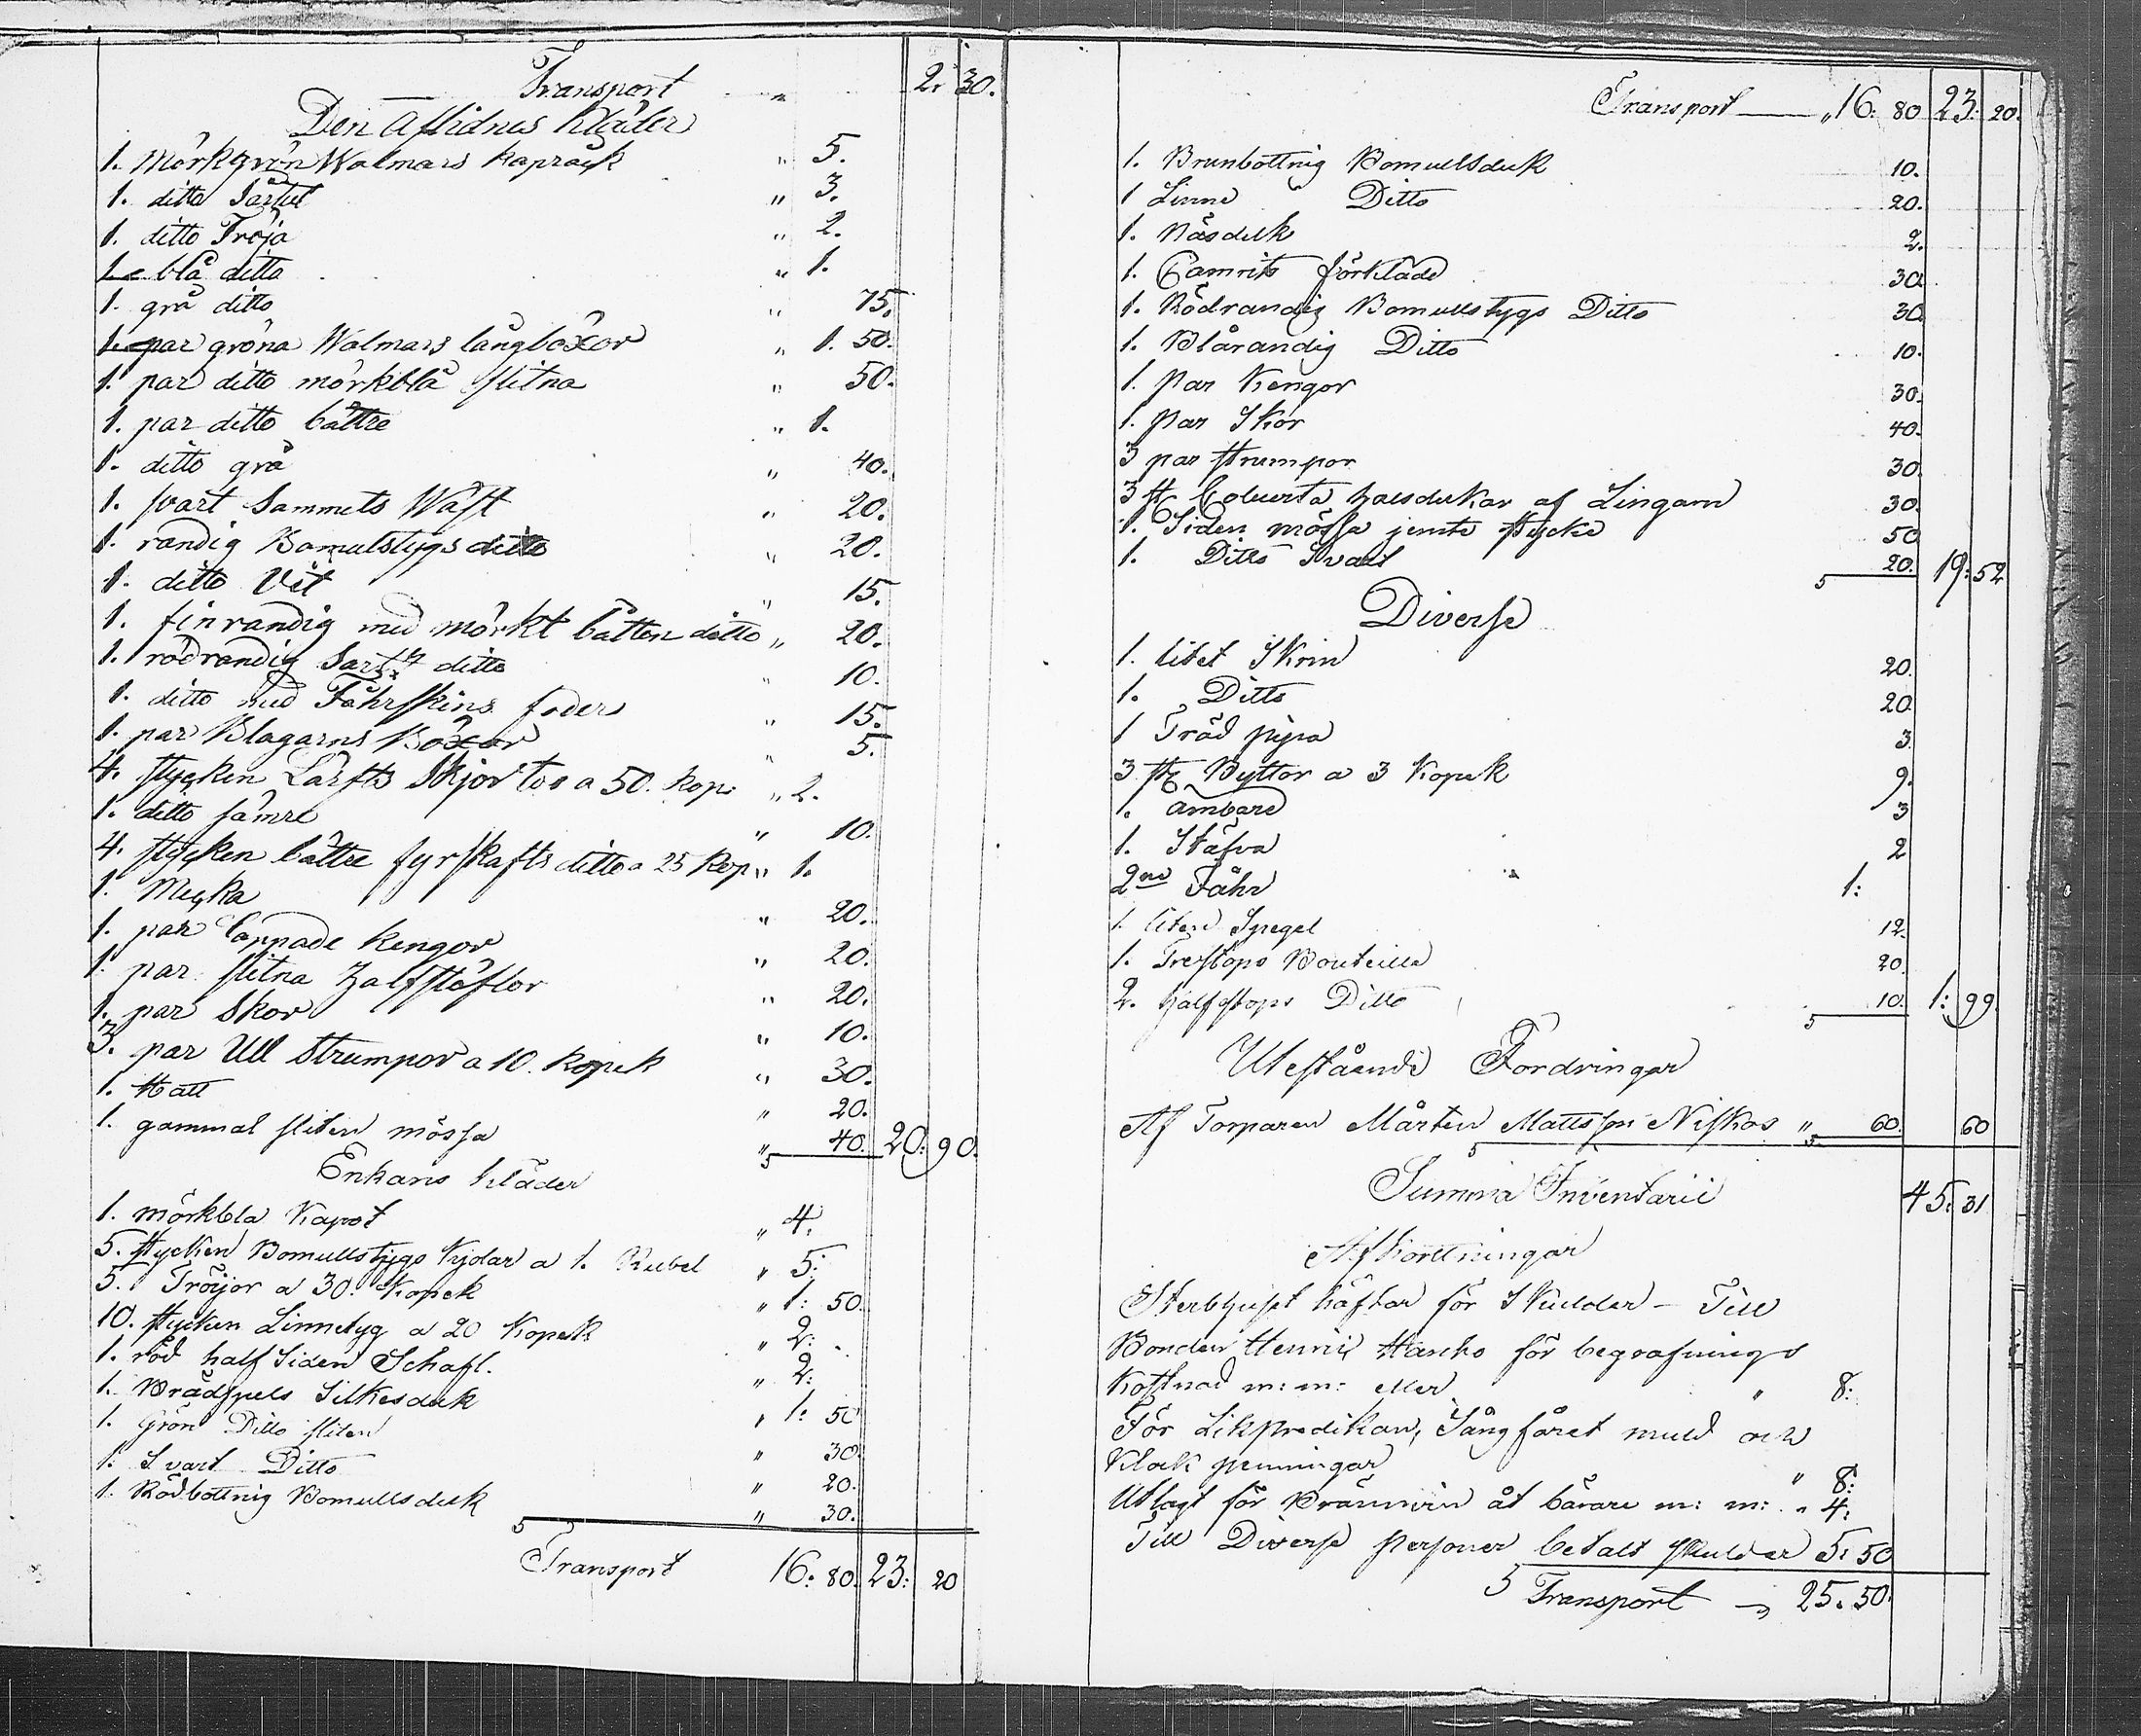 Transport " 2. 30.
Den Aflidnes kläder
1. Mörkgrön Walmars kapråck " 5.
1. ditto " 3.
1. ditto Tröja " 2.
1. blå ditto " 1.
1. grå ditto " 75.
1. par gröna Walmars långböxor " 1. 50.
1. par ditto mörkblå slitna " 50.
1. par ditto bättre " 1.
1. ditto grå " 40.
1. svart Sammets Wäst " 20.
1. randig Bomulstygs ditto " 20.
1. ditto Vit " 15.
1. finrandig med mörkt båtten ditto " 20.
1. rödrandig ditto " 10.
1. ditto med Fåhrskins foder " 15.
1. par Blagarns Böxor " 5.
4. stycken Lärfts Skjortor a 50. kop: " 2.
1. ditto sämre " 10.
4. stycken bättre fyrskafts ditto a 25 Kop " 1.
1. " 20.
1. par lappade kengor " 20.
1. par slitna halfstöflor " 20.
1. par Skor " 10.
3. par Ull Strumpor a 10. kopek " 30.
1. Hatt " 20.
1. gammal sliten mössa " 40. 20: 90.
Enkans kläder
1. mörkbla Kapot " 4.
5. stycken Bomullstygs Kjolar a 1. Rubel " 5:
5. Tröijor a 30. Kopek " 1: 50.
10. stycken Linnetyg a 20 Kopek " 2:
1. röd half Siden Schafl. " 2:
1. Silkesduk " 1: 50
1. Grön Ditto sliten " 30.
1. Svart Ditto " 20.
1. Rödbottnig Bomullsduk " 30.
Transport 16: 80. 23: 20
Transport " 16: 80 23: 20.
1. Brunbottnig Bomullsduk 10.
1 Linne Ditto 20.
1. Näsduk 2.
1. Camrits förkläde 30.
1. Rödrandig Bomullstygs Ditto 30.
1. Blårandig Ditto 10.
1. par Kengor 30.
1. par Skor 40.
3 par strumpor 30.
3 st. halsdukar af Lingarn 30.
1. Siden mössa jemte stycke 50
1. Ditto Svart 20. 19: 52
Diverse
1. litet Skrin 20.
1. Ditto 20.
1 Träd pipa 3.
3 st. Byttor a 3 Kopek 9.
1. ämbare 3
1. Stäfva 2
2ne Fåhr 1:
1. liten Spegel 12.
1. Trestops Bouteille 20.
2. halfstops Ditto 10. 1: 99.
Utestående Fordringar
Af Torparen Mårten Mattsson Niskos " 60. 60
Summa Inventarii 45: 31
Afkortningar
Sterbhuset häftar för Skulder – Till
Bonden Henric Hanko för begrafnings
Kostnad m: m: eller " 8:
För Likpredikan, Sångfåret muld och
Klock penningar " 8:
Utlagt för Bränvin åt bärare m: m: " 4:
Till Diverse personer betalt skulder 5: 50
Transport 25. 50.